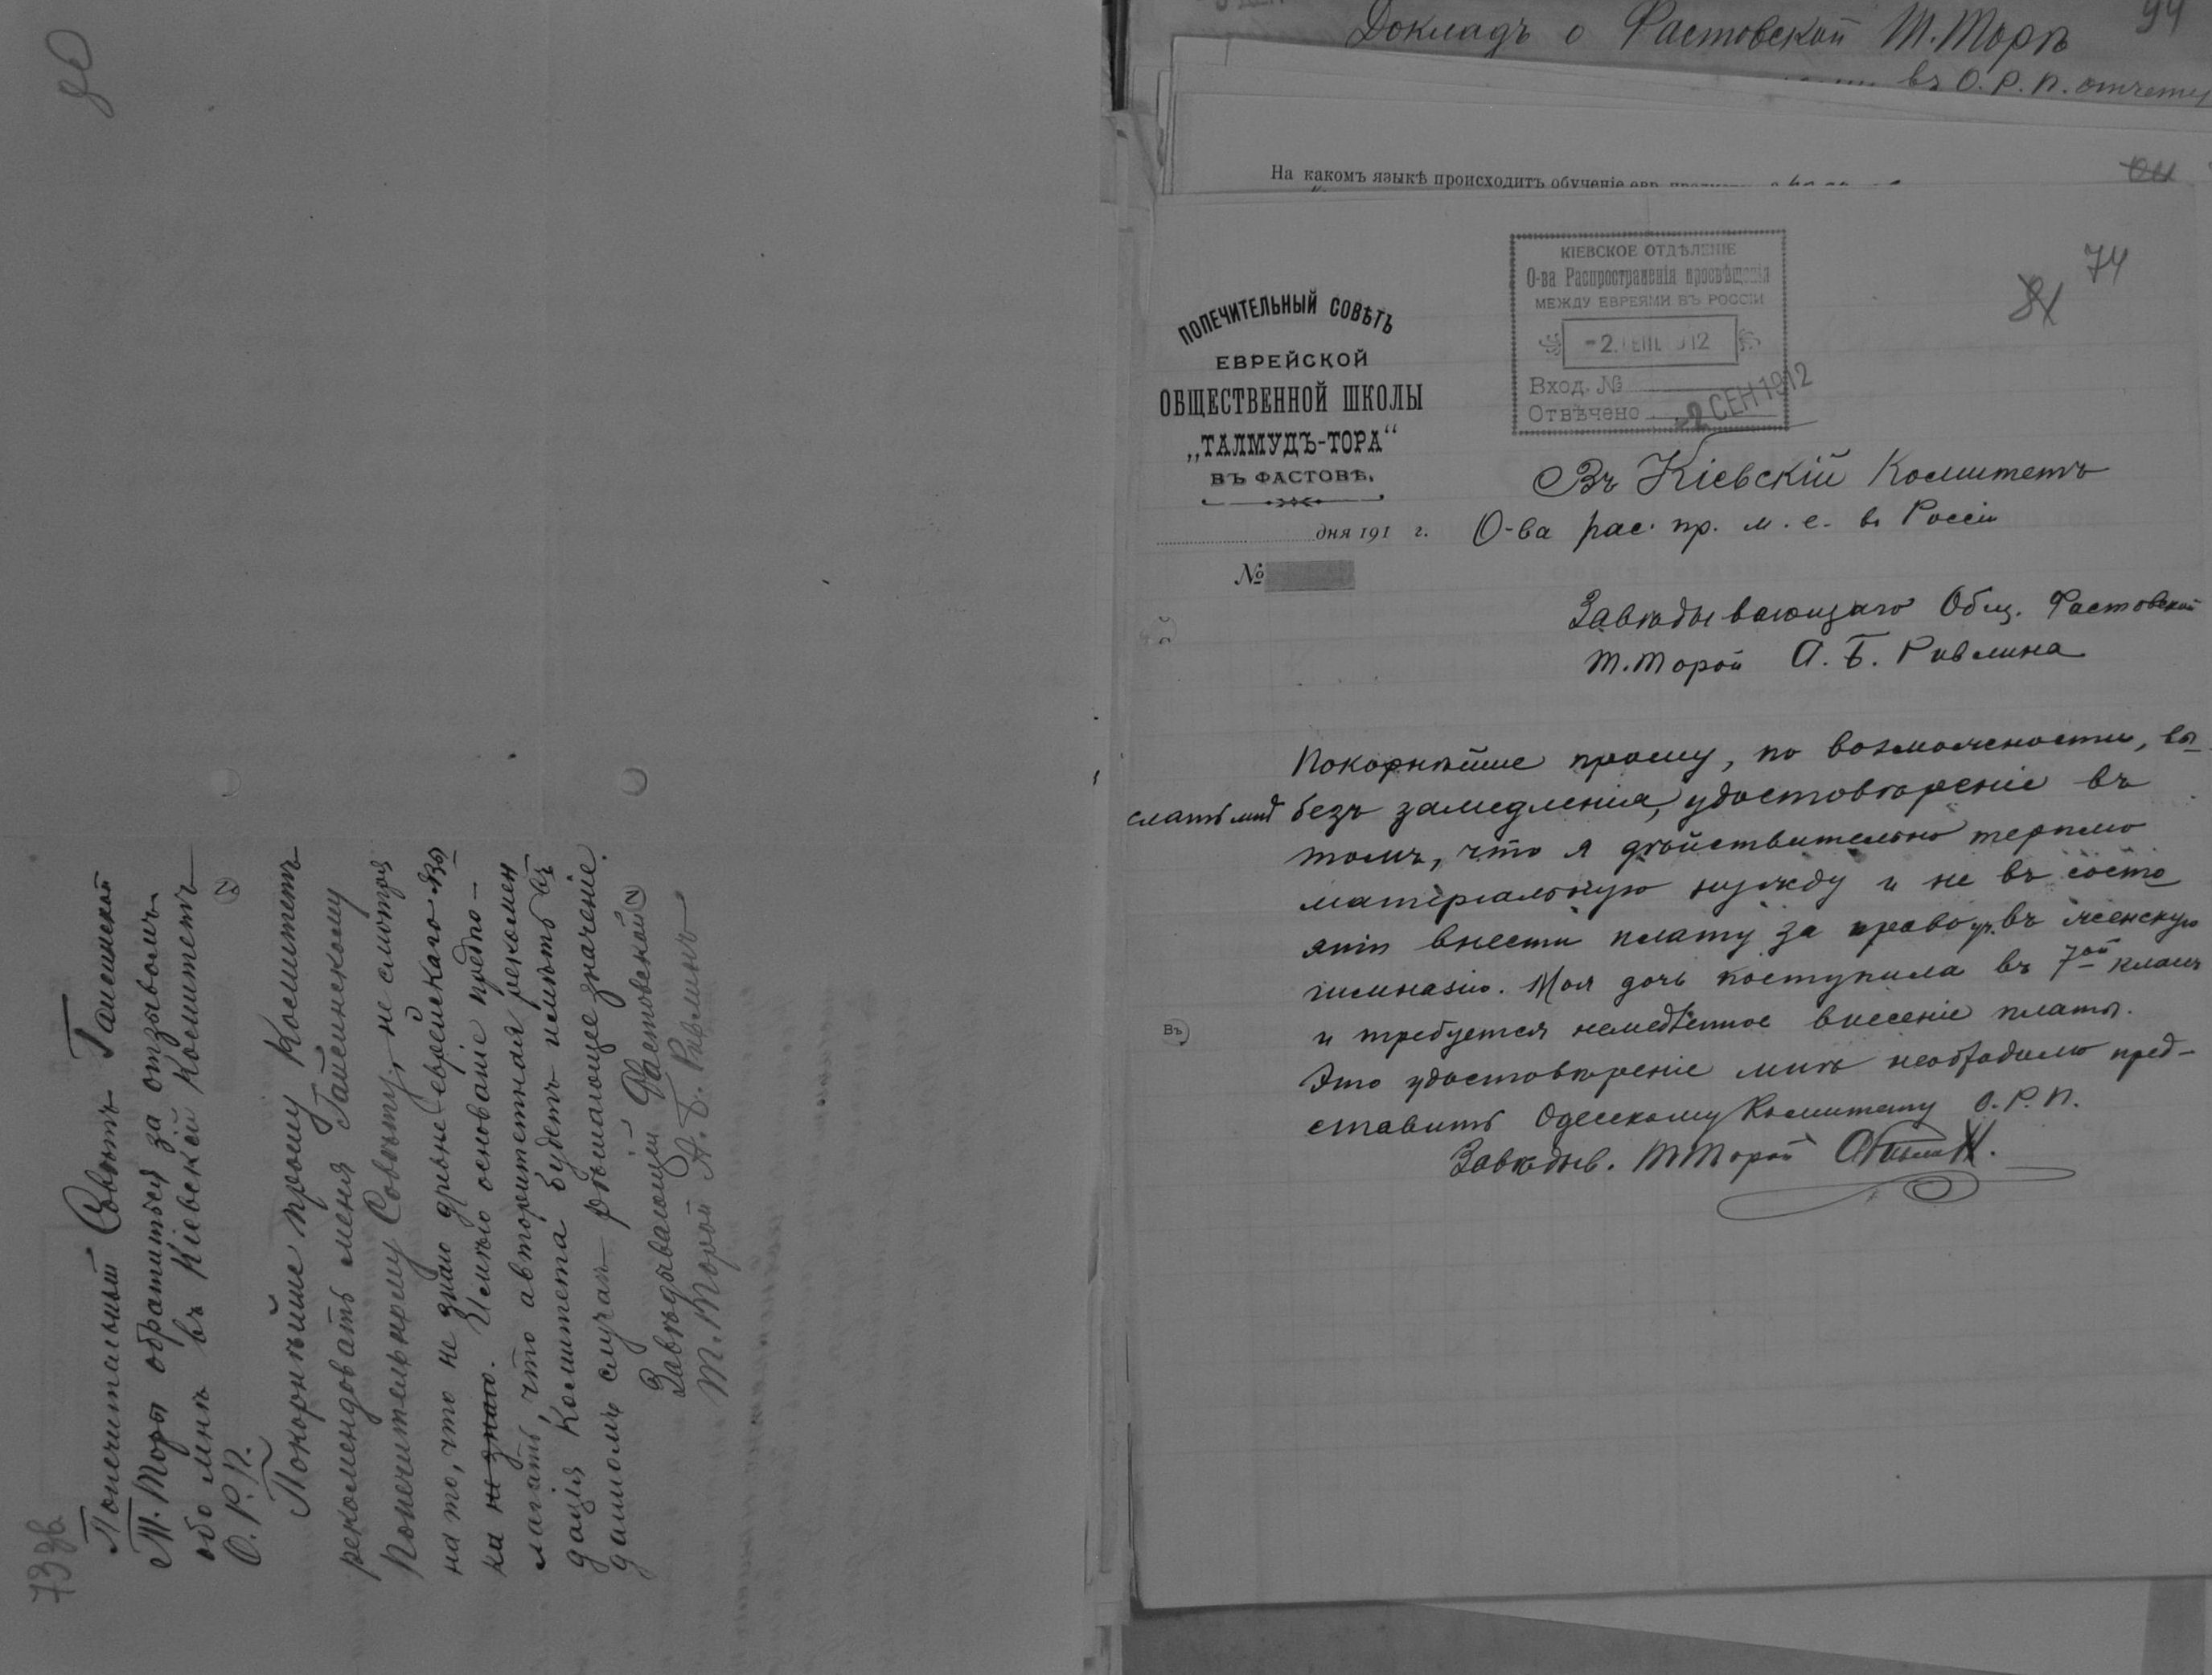 80
73 об.
Попечительный Совѣтъ Гайсинской
Т. Торы обратиться за отзывомъ
обо мнѣ въ Кіевскій Комитетъ
О. Р. П.
Покорнѣйше прошу Комитетъ
рекомендовать меня Гайсинскому
Попечительному Совѣту, не смотря
на то, что не знаю древне-еврейскаго язы
ка не знаю. Имѣю основаніе предпо-
лагать, что авторитетная рекомен
дація Комитета будетъ имѣть въ
данномъ случаѣ рѣшающее значеніе.
Завѣдывающій Фастовской
Т. Торой А. Б. Ривлинъ
Докладъ о Фастовской Т. Торѣ
въ О. Р. П. отчету
На какомъ языкѣ происходитъ обученіе евр.
74
81
КІЕВСКОЕ ОТДѢЛЕНІЕ
О-ва Распространенія просвѣщенія
МЕЖДУ ЕВРЕЯМИ ВЪ РОССІИ
-2. СЕН. 1912
Вход. №
Отвѣчено -2 СЕН 1912
ПОПЕЧИТЕЛЬНЫЙ СОВѢТЪ
ЕВРЕЙСКОЙ
ОБЩЕСТВЕННОЙ ШКОЛЫ
„ТАЛМУДЪ-ТОРА“
ВЪ ФАСТОВѢ.
дня 191 г.
№
Въ Кіевскій Комитетъ
О-ва рас. пр. м. е. в. Россіи
Завѣдывающаго Общ. Фастовской
Т. Торой А. Б. Ривлина
Покорнѣйше прошу, по возможности, вы
слать мнѣ безъ замедленія, удостовѣреніе въ
томъ, что я дѣйствительно терплю
матеріальную нужду и не въ состо
яніи внести плату за право уч. въ женскую
гимназію. Моя дочь поступила въ 7ой классъ
и требуется немедленное внесеніе платы.
Это удостовѣреніе мнѣ необходимо пред-
ставить Одесскому Комитету О. Р. П.
Завѣдыв. Т Торой
Въ